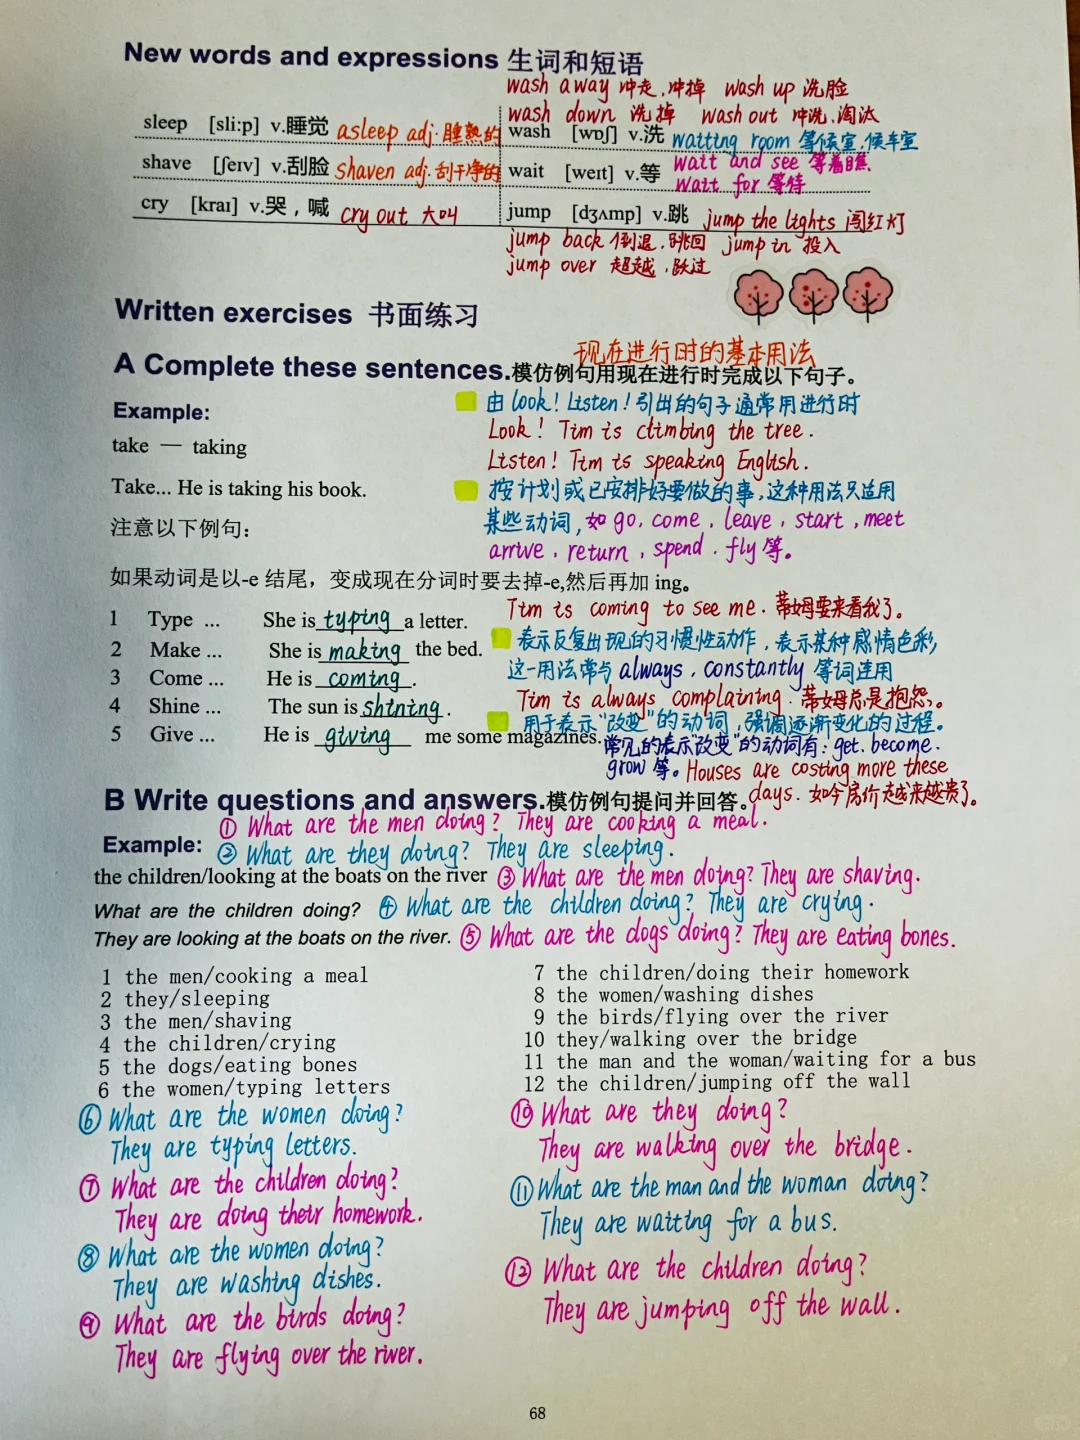 New words and expressions 生词和短语
wash away 冲走,冲掉 wash up 洗脸
wash down 洗掉 wash out 冲洗,淘汰
sleep [sli:p] v.睡觉 asleep adj.睡熟的
wash [wɒʃ] v.洗 waiting room 等候室,候车室
shave [ʃeɪv] v.刮脸 shaven adj.刮干净的
wait and see 等着瞧
wait [weɪt] v.等
wait for 等待
cry [kraɪ] v.哭，喊 cry out 大叫
jump [dʒʌmp] v.跳 jump the lights 闯红灯
jump back 倒退,跳回 jump in 投入
jump over 超越,跃过
Written exercises 书面练习
现在进行时的基本用法
A Complete these sentences.模仿例句用现在进行时完成以下句子。
Example:
take — taking
Take... He is taking his book.
注意以下例句：
由look! Listen!引出的句子通常用进行时
Look! Tim is climbing the tree.
Listen! Tim is speaking English.
按计划或已安排好要做的事,这种用法只适用
某些动词,如go, come, leave, start, meet
arrive, return, spend, fly等。
如果动词是以-e 结尾，变成现在分词时要去掉-e,然后再加 ing。
Tim is coming to see me. 蒂姆要来看我了。
1 Type ... She is typing a letter.
2 Make ... She is making the bed.
3 Come ... He is coming.
4 Shine ... The sun is shining.
5 Give ... He is giving me some magazines.
表示反复出现的习惯性动作,表示某种感情色彩
这一用法常与always, constantly 等词连用
Tim is always complaining. 蒂姆总是抱怨。
用于表示"改变"的动词,强调逐渐变化的过程。
常见的表示"改变"的动词有: get, become,
grow 等。Houses are costing more these
days. 如今房价越来越贵了。
B Write questions and answers.模仿例句提问并回答。
① What are the men doing? They are cooking a meal.
Example: ② What are they doing? They are sleeping.
the children/looking at the boats on the river ③ What are the men doing? They are shaving.
What are the children doing? ④ What are the children doing? They are crying.
They are looking at the boats on the river. ⑤ What are the dogs doing? They are eating bones.
1 the men/cooking a meal
2 they/sleeping
3 the men/shaving
4 the children/crying
5 the dogs/eating bones
6 the women/typing letters
7 the children/doing their homework
8 the women/washing dishes
9 the birds/flying over the river
10 they/walking over the bridge
11 the man and the woman/waiting for a bus
12 the children/jumping off the wall
⑥ What are the women doing?
They are typing letters.
⑦ What are the children doing?
They are doing their homework.
⑧ What are the women doing?
They are washing dishes.
⑨ What are the birds doing?
They are flying over the river.
⑩ What are they doing?
They are walking over the bridge.
⑪ What are the man and the woman doing?
They are waiting for a bus.
⑫ What are the children doing?
They are jumping off the wall.
68